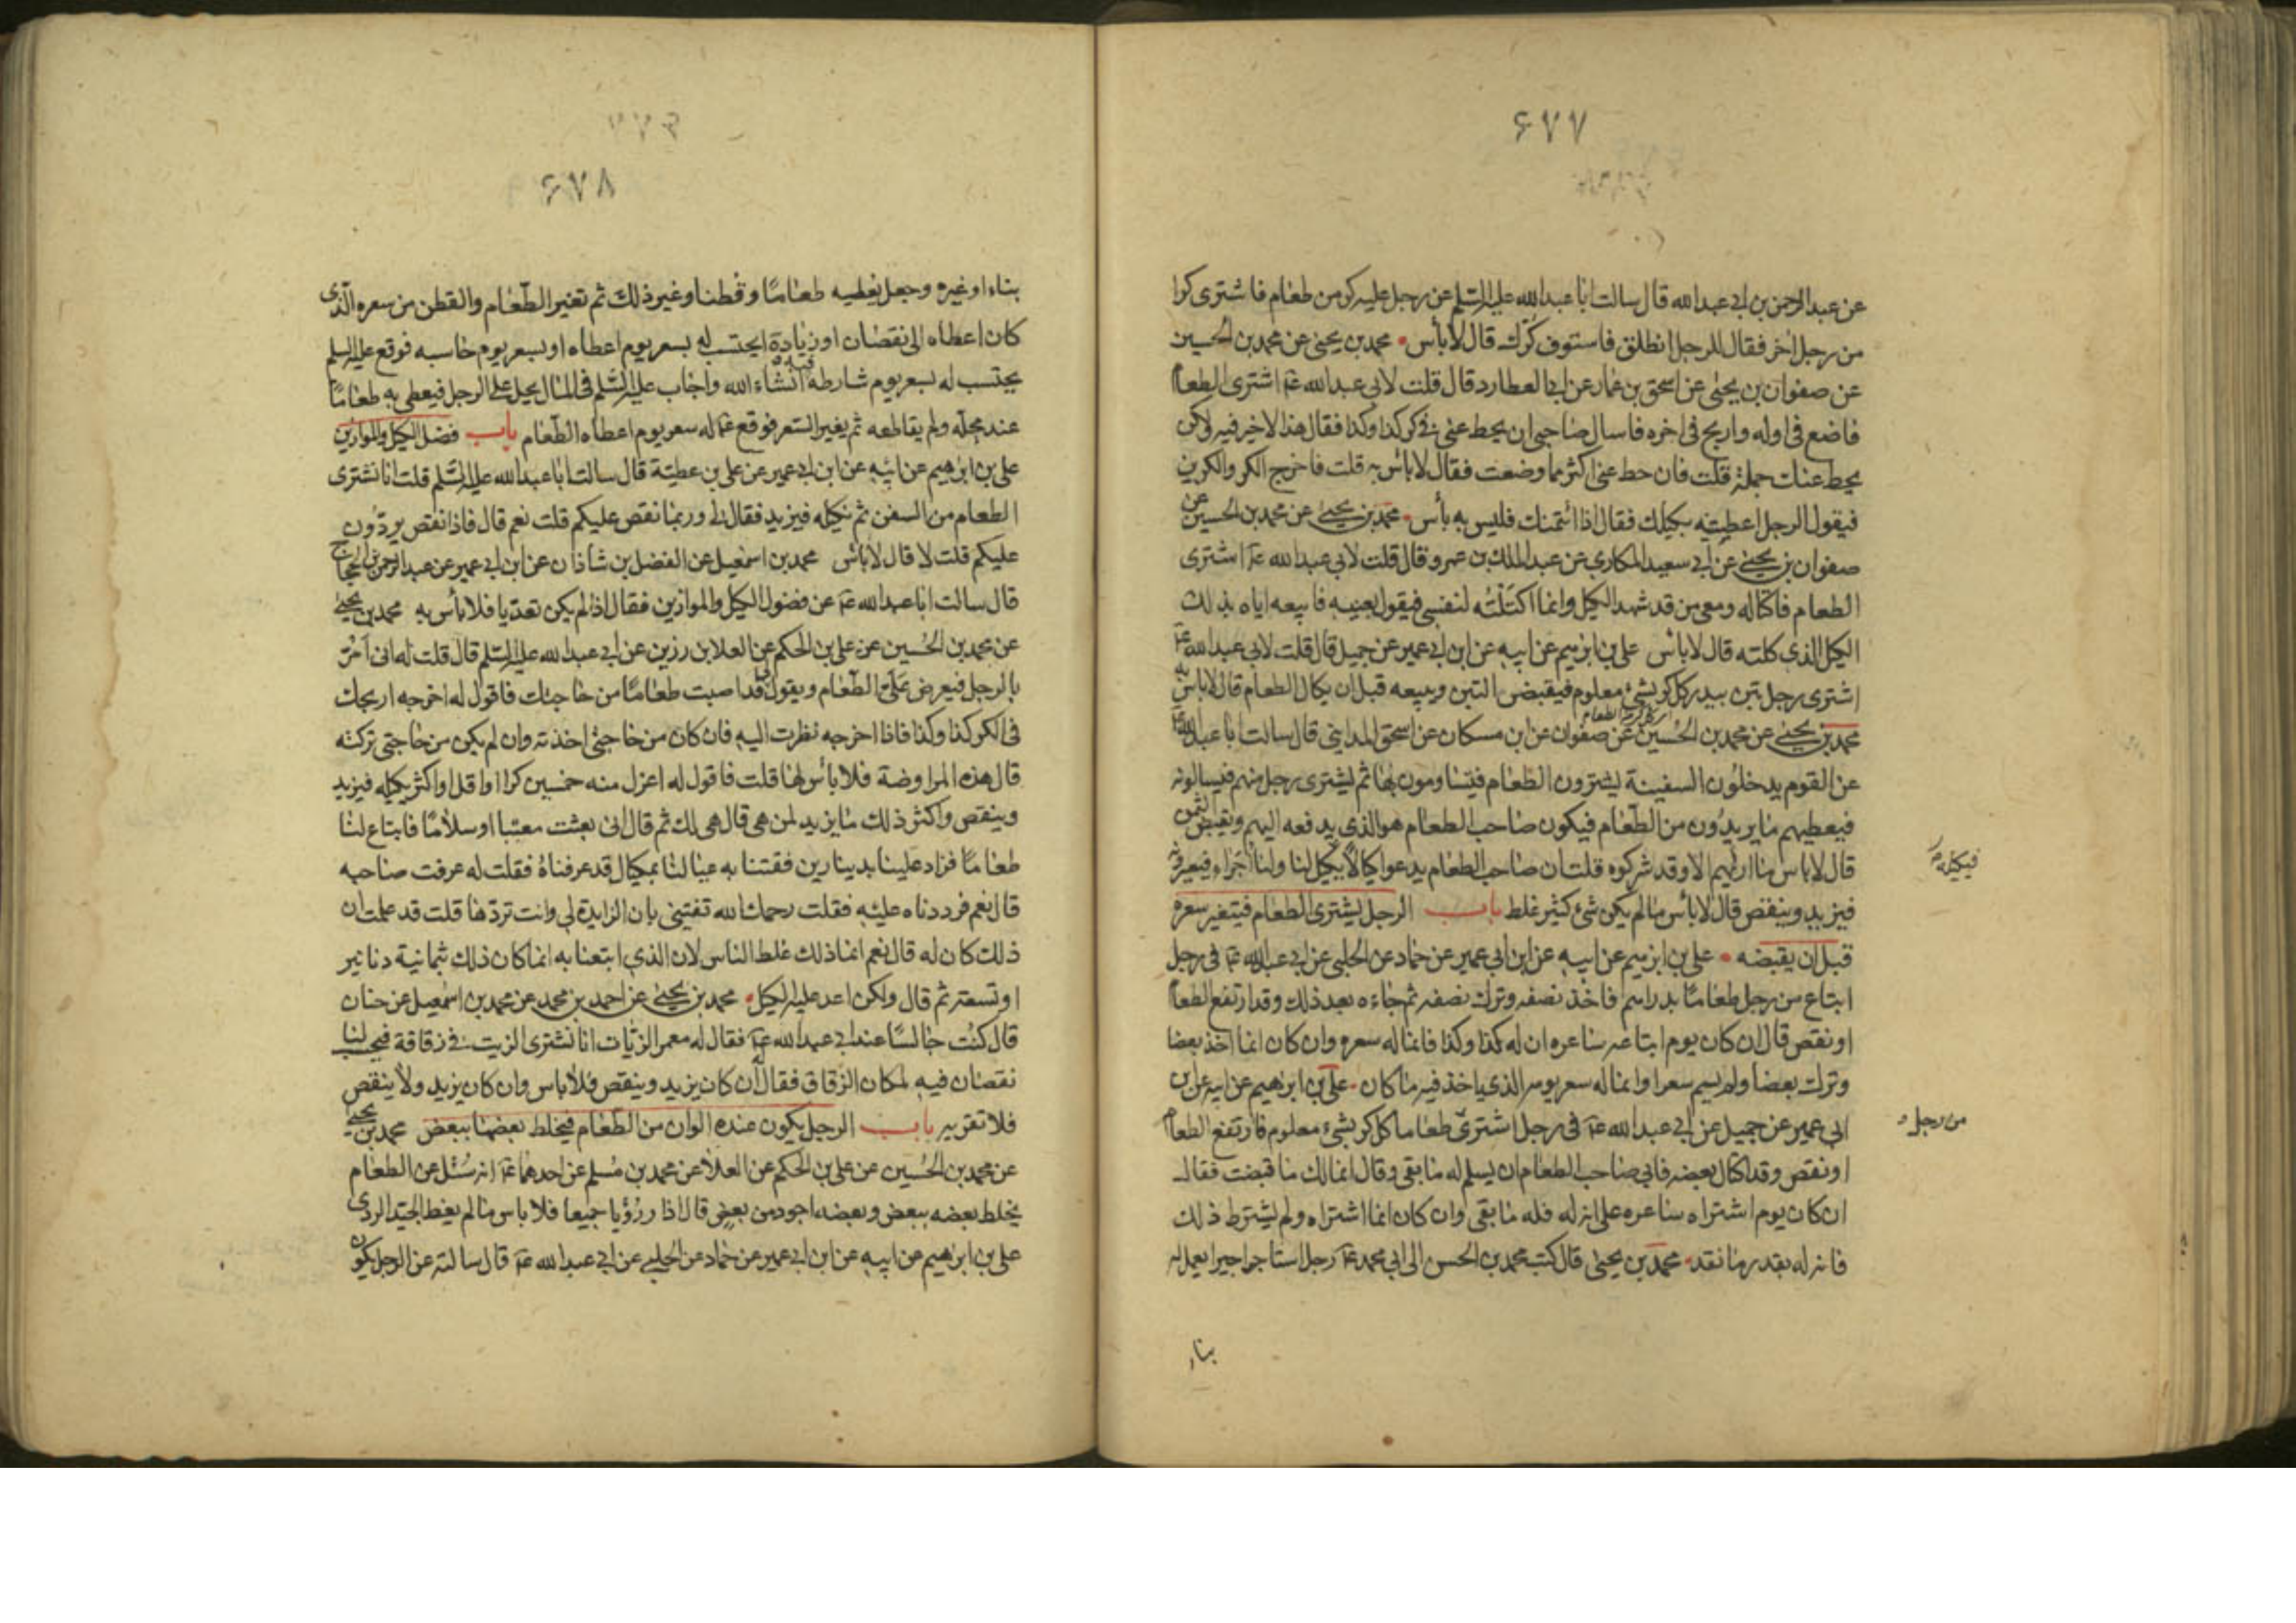 ۶۷۷
عن عبد الرحمن بن ابي عبد الله قال سالت ابا عبد الله عليه السلم عن رجل عليه كر من طعام فاشترى كرا
من رجل اخر فقال للرجل انطلق فاستوف كرك قال لا بأس محمد بن يحيى عن محمد بن الحسين
عن صفوان بن يحيى عن اسحق بن عمار عن ابي العطارد قال قلت لابي عبد الله عم اشترى الطعام
فاضع في اوله واربح في اخره فاسال صاحبي ان يحط عني في كل كر كذا وكذا فقال هذا لا خير فيه ولكن
يحط عنك جملة قلت فان حط عني اكثر مما وضعت فقال لا باس به قلت فاخرج الكر والكرين
فيقول الرجل اعطنيه بكيلك فقال اذا ائتمنك فليس به بأس محمد بن يحيى عن محمد بن الحسين عن
صفوان بن يحيى عن ابي سعيد المكاري عن عبد الملك بن عمرو قال قلت لابي عبد الله عم اشترى
الطعام فاكتاله ومعي من قد شهد الكيل وانما اكتلته لنفسي فيقول بعنيه فابيعه اياه بذلك
الكيل الذي كلته قال لا باس علي بن ابرهيم عن ابيه عن ابن ابي عمير عن جميل قال قلت لابي عبد الله عم
اشترى رجل تبن بيدر كل كر بشئ معلوم فيقبض التبن ويبيعه قبل ان يكال الطعام قال لا باس به
محمد بن يحيى عن محمد بن الحسين عن صفوان عن ابن مسكان عن اسحق المدايني قال سالت ابا عبد الله عم
عن القوم يدخلون السفينة يشترون الطعام فيتساومون بها ثم يشترى رجل منهم فيسالونه
فيعطيهم ما يريدون من الطعام فيكون صاحب الطعام هو الذي يدفعه اليهم ويقبض الثمن
قال لا باس ما اراهم الا وقد شركوه قلت ان صاحب الطعام يدعو كيالا فيكيل لنا ولنا اجراء فيعيرونه
فيكيله
فيزيد وينقص قال لا بأس ما لم يكن شئ كثير غلط باب الرجل يشترى الطعام فيتغير سعره
قبل ان يقبضه علي بن ابرهيم عن ابيه عن ابن ابي عمير عن حماد عن الحلبي عن ابي عبد الله عم في رجل
ابتاع من رجل طعاما بدراهم فاخذ نصفه وترك نصفه ثم جاءه بعد ذلك وقد ارتفع الطعام
او نقص قال ان كان يوم ابتاعه ساعره ان له كذا وكذا فانما له سعره وان كان انما اخذ بعضا
وترك بعضا ولم يسم سعرا وانما له سعر يومه الذي ياخذ فيه ما كان علي بن ابرهيم عن ابيه عن ابن
ابي عمير عن جميل عن ابي عبد الله عم في رجل اشترى طعاما كل كر بشئ معلوم فارتفع الطعام
من رجل
او نقص وقد اكتال بعضه فابى صاحب الطعام ان يسلم له ما بقى وقال انما لك ما قبضت فقال
ان كان يوم اشتراه ساعره على انه له فله ما بقى وان كان انما اشتراه ولم يشترط ذلك
فانه له بقدر ما نقد محمد بن يحيى قال كتب محمد بن الحسن الى ابي محمد عم رجل استاجر اجيرا يعمل له
بناء
۶۷۸
بناء او غيره وجعل يعطيه طعاما وقطنا وغير ذلك ثم تغير الطعام والقطن من سعره الذي
كان اعطاه الى نقصان او زيادة ايحتسب له بسعر يوم اعطاه او بسعر يوم حاسبه فوقع عليه السلم
يحتسب له بسعر يوم شارطه فيه انشاء الله واجاب عليه السلم في المال يحل على الرجل فيعطى به طعاما
عند محله ولم يقاطعه ثم يغير السعر فوقع عم له سعر يوم اعطاه الطعام باب فضل الكيل والموازين
علي بن ابرهيم عن ابيه عن ابن ابي عمير عن علي بن عطية قال سالت ابا عبد الله عليه السلم قلت انا نشترى
الطعام من السفن ثم نكيله فيزيد فقال لي وربما نقص عليكم قلت نعم قال فاذا نقص يردون
عليكم قلت لا قال لا باس محمد بن اسمعيل عن الفضل بن شاذان عن ابن ابي عمير عن عبد الرحمن بن الحجاج
قال سالت ابا عبد الله عم عن فضول الكيل والموازين فقال اذا لم يكن تعديا فلا بأس به محمد بن يحيى
عن محمد بن الحسين عن علي بن الحكم عن العلا بن رزين عن ابي عبد الله عليه السلم قال قلت له اني امر
بالرجل فيعرض علي الطعام ويقول لي قد اصبت طعاما من حاجتك فاقول له اخرجه اربحك
في الكر كذا وكذا فاذا اخرجه نظرت اليه فان كان من حاجتي اخذته وان لم يكن من حاجتي تركته
قال هذه المراوضة فلا بأس بها قلت فاقول له اعزل منه خمسين كرا او اقل او اكثر بكيله فيزيد
وينقص واكثر ذلك ما يزيد لمن هي قال هي لك ثم قال اني بعثت معتبا او سلاما فابتاع لنا
طعاما فزاد علينا بدينارين فقتنا به عيالنا بمكيال قد عرفناه فقلت له عرفت صاحبه
قال نعم فرددناه عليه فقلت رحمك الله تفتيني بان الزيادة لي وانت تردها قلت قد علمت ان
ذلك كان له قال نعم انما ذلك غلط الناس لان الذي ابتعنا به انما كان ذلك بثمانية دنانير
او تسعة ثم قال ولكن اعد عليه الكيل محمد بن يحيى عن احمد بن محمد عن محمد بن اسمعيل عن حنان
قال كنت جالسا عند ابي عبد الله عم فقال له معمر الزيات انا نشترى الزيت في زقاقة فيحسب لنا
نقصان فيه لمكان الزقاق فقال ان كان يزيد وينقص فلا باس وان كان يزيد ولا ينقص
فلا تقربه باب الرجل يكون عنده الوان من الطعام فيخلط بعضها ببعض محمد بن يحيى
عن محمد بن الحسين عن علي بن الحكم عن العلا عن محمد بن مسلم عن احدهما عم انه سئل عن الطعام
يخلط بعضه ببعض وبعضه اجود من بعض قال اذا رؤيا جميعا فلا باس ما لم يغط الجيد الردى
علي بن ابرهيم عن ابيه عن ابن ابي عمير عن حماد عن الحلبي عن ابي عبد الله عم قال سالته عن الرجل يكون